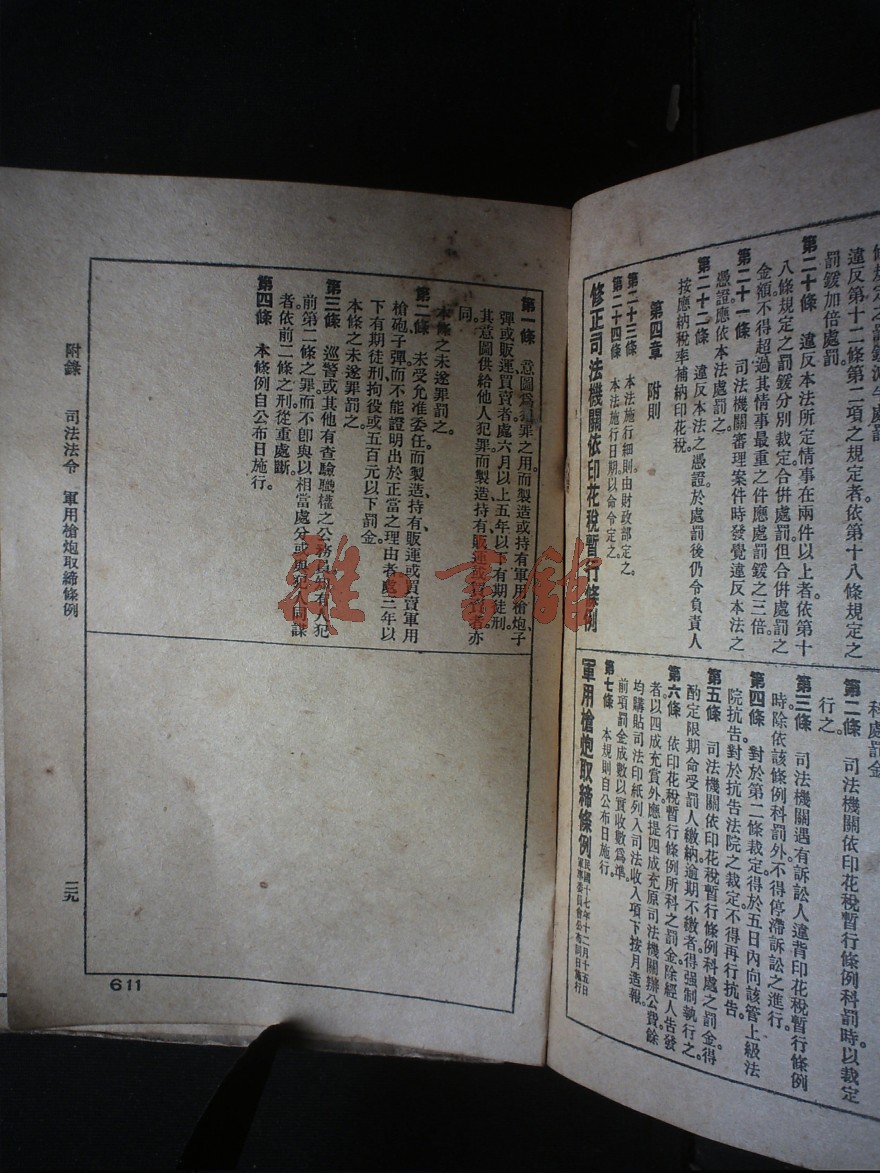 違反第十二條第二項之規定者依第十八條規定之
罰鍰加倍處罰。
第二十條　違反本法所定情事在兩件以上者依第十
八條規定之罰鍰分別裁定合併處罰但合併處罰之
金額不得超過其情事最重之件應處罰鍰之三倍。
第二十一條　司法機關審理案件時發覺違反本法之
憑證應依本法處罰之。
第二十二條　違反本法之憑證於處罰後仍令負責人
按應納稅率補納印花稅。
第四章　附則
第二十三條　本法施行細則由財政部定之。
第二十四條　本法施行日期以命令定之。
修正司法機關依印花稅暫行條例
科處罰金
第二條　司法機關依印花稅暫行條例科罰時以裁定
行之。
第三條　司法機關遇有訴訟人違背印花稅暫行條例
時除依該條例科罰外不得停滯訴訟之進行。
第四條　對於第二條裁定得於五日內向該管上級法
院抗告對於抗告法院之裁定不得再行抗告。
第五條　司法機關依印花稅暫行條例科處之罰金得
酌定限期命受罰人繳納逾期不繳者得強制執行之。
第六條　依印花稅暫行條例所科之罰金除經人告發
者以四成充賞外應提四成充原司法機關辦公費餘
均購貼司法印紙列入司法收入項下按月造報。
前項罰金成數以實收數爲準。
第七條　本規則自公布日施行。
軍用槍炮取締條例 民國十七年十二月十五日
軍事委員會公布同日施行
第一條　意圖爲犯罪之用而製造或持有軍用槍炮子
彈或販運買賣者處六月以上五年以下有期徒刑。
其意圖供給他人犯罪而製造、持有、販運或買賣者亦
同。
本條之未遂罪罰之。
第二條　未受允准委任而製造、持有、販運或買賣軍用
槍砲子彈而不能證明出於正當之理由者處三年以
下有期徒刑拘役或五百元以下罰金。
本條之未遂罪罰之。
第三條　巡警或其他有查驗職權之公務員知有人犯
前第二條之罪而不卽與以相當處分或與犯人同謀
者依前二條之刑從重處斷。
第四條　本條例自公布日施行。
附錄　司法法令　軍用槍炮取締條例
二九
611
雜·書館